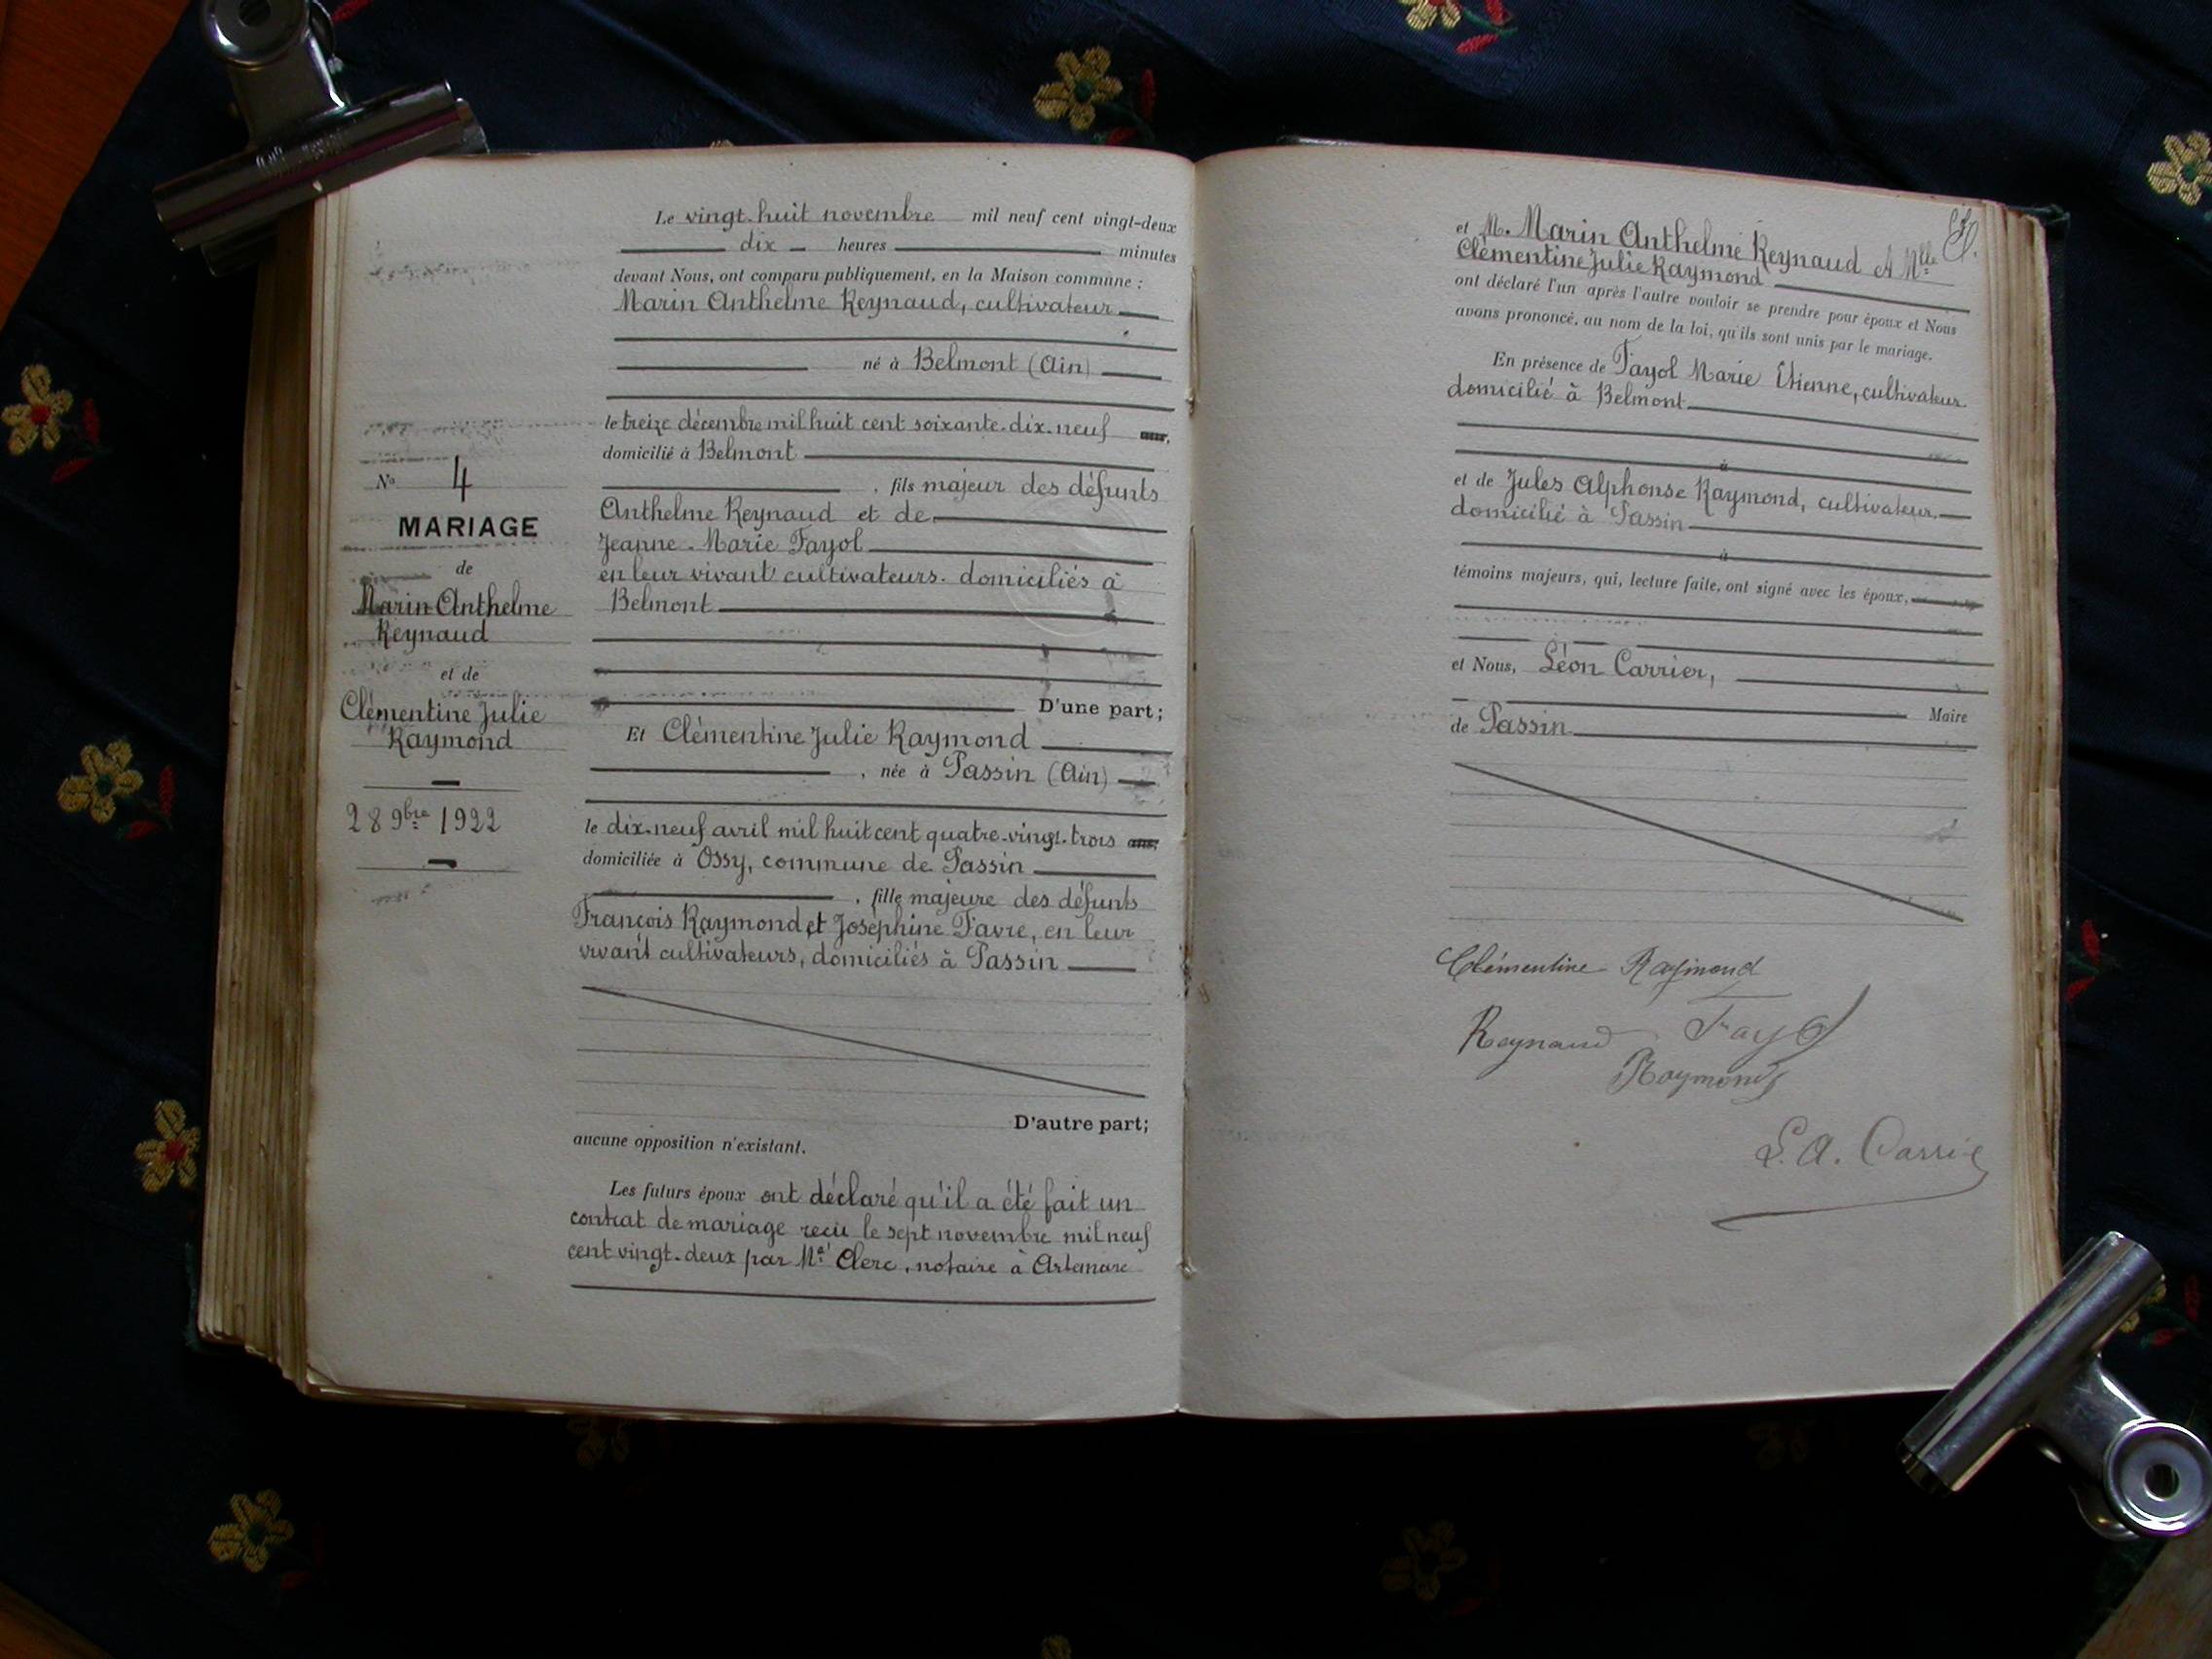 Le vingt-huit novembre mil neuf cent vingt-deux
dix heures minutes
devant Nous, ont comparu publiquement, en la Maison commune :
Marin Anthelme Reynaud, cultivateur
né à Belmont (Ain)
le treize décembre mil huit cent soixante-dix-neuf
domicilié à Belmont
, fils majeur des défunts
Anthelme Reynaud et de
Jeanne-Marie Fayol
en leur vivant cultivateurs. domiciliés à
Belmont
D'une part;
Et Clémentine Julie Raymond
, née à Passin (Ain)
le dix-neuf avril mil huit cent quatre-vingt-trois ans;
domiciliée à Ossy, commune de Passin
, fille majeure des défunts
François Raymond et Joséphine Favre, en leur
vivant cultivateurs, domiciliés à Passin
D'autre part;
aucune opposition n'existant.
Les futurs époux ont déclaré qu'il a été fait un
contrat de mariage reçu le sept novembre mil neuf
cent vingt-deux par Me Clerc, notaire à Artemare
No 4
MARIAGE
de
Marin Anthelme
Reynaud
et de
Clémentine Julie
Raymond
28 9bre 1922
et M. Marin Anthelme Reynaud et Mlle
Clémentine Julie Raymond
ont déclaré l'un après l'autre vouloir se prendre pour époux et Nous
avons prononcé, au nom de la loi, qu'ils sont unis par le mariage.
En présence de Fayol Marie Etienne, cultivateur
domicilié à Belmont
à
et de Jules Alphonse Raymond, cultivateur,
domicilié à Passin
à
témoins majeurs, qui, lecture faite, ont signé avec les époux,
et Nous, Léon Carrier,
Maire
de Passin
Clémentine Raymond
Reynaud Fayol
Raymond
L. A. Carrier